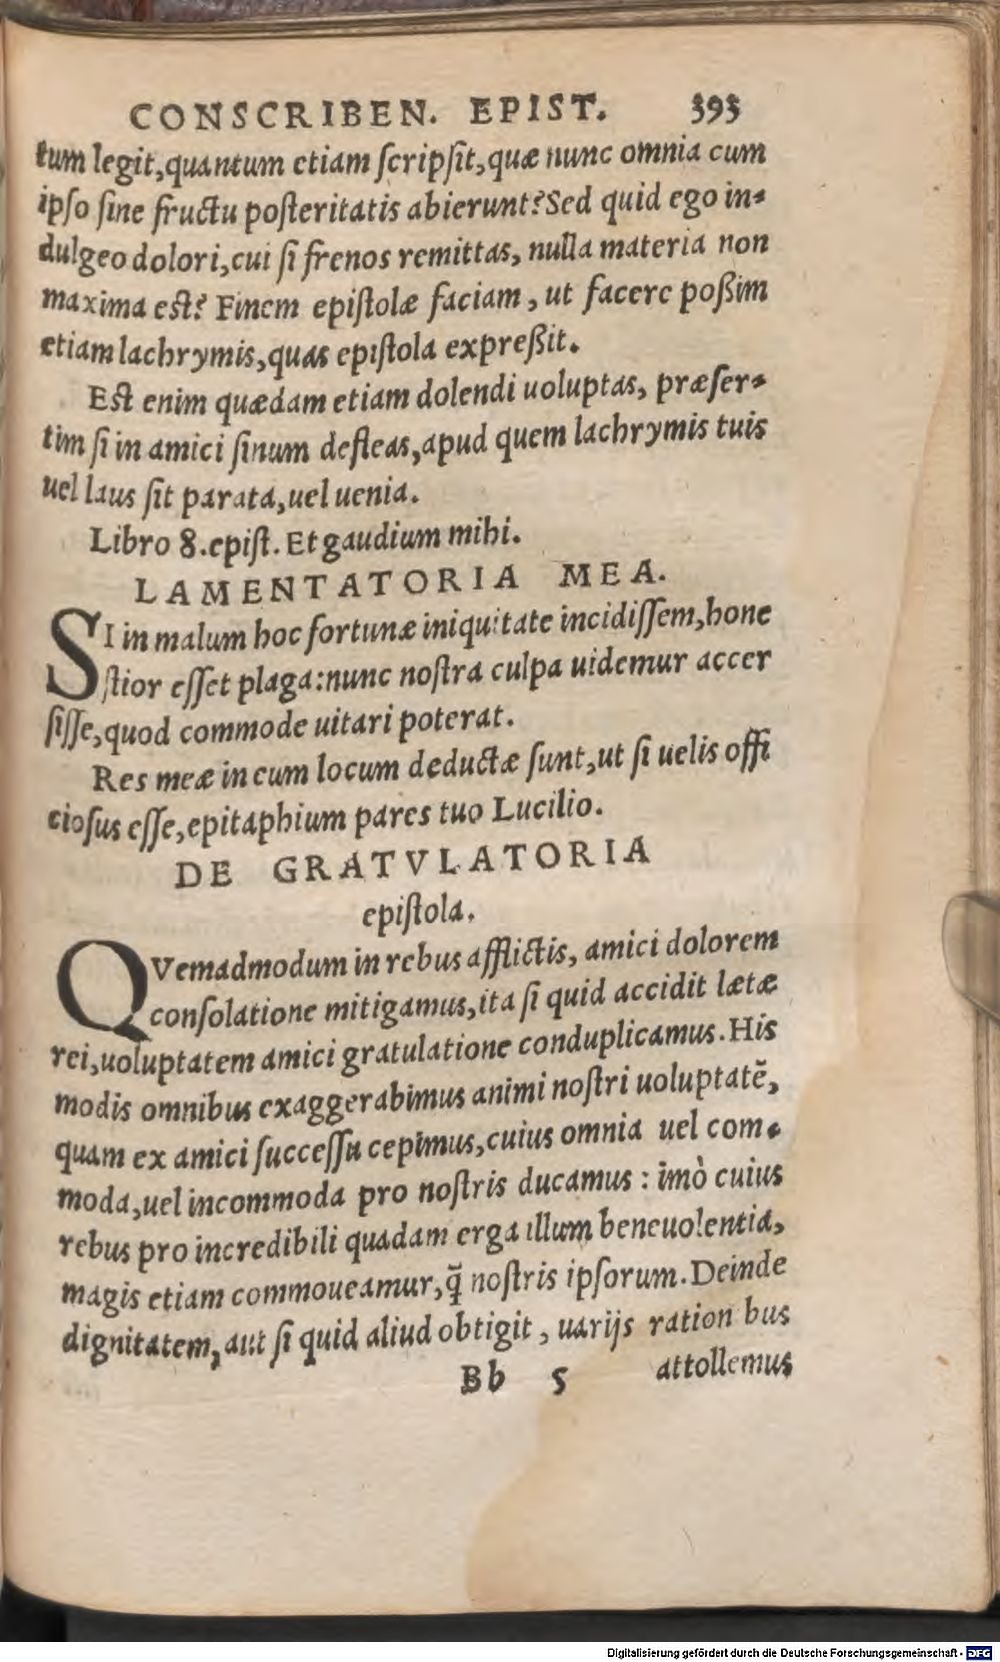 CONSCRIBEN. EPIST. 393
tum legit,quantum etiam ſcripſit,quæ nunc omnia cum
ipſo ſine fructu poſteritatis abierunt?Sed quid ego in-
dulgeo dolori,cui ſi frenos remittas, nulla materia non
maxima est? Finem epiſtolæ faciam, ut facere poßim
etiam lachrymis,quas epiſtola expreßit.
Est enim quædam etiam dolendi uoluptas, præſer-
tim ſi in amici ſinum defleas,apud quem lachrymis tuis
uel laus ſit parata,uel uenia.
Libro 8.epiſt. Et gaudium mihi.
LAMENTATORIA MEA.
SI in malum hoc fortunæ iniquitate incidiſſem,hone
ſtior eſſet plaga:nunc noſtra culpa uidemur accer
ſiſſe,quod commode uitari poterat.
Res meæ in eum locum deductæ ſunt,ut ſi uelis offi
cioſus eſſe,epitaphium pares tuo Lucilio.
DE GRATVLATORIA
epiſtola.
QVemadmodum in rebus afflictis, amici dolorem
conſolatione mitigamus,ita ſi quid accidit lætæ
rei,uoluptatem amici gratulatione conduplicamus.His
modis omnibus exaggerabimus animi noſtri uoluptatē,
quam ex amici ſucceſſu cepimus,cuius omnia uel com-
moda,uel incommoda pro noſtris ducamus : imò cuius
rebus pro incredibili quadam erga illum beneuolentia,
magis etiam commoueamur,q̃ noſtris ipſorum.Deinde
dignitatem, aut ſi quid aliud obtigit, uarijs ration bus
Bb 5 attollemus
Digitalisierung gefördert durch die Deutsche Forschungsgemeinschaft - DFG